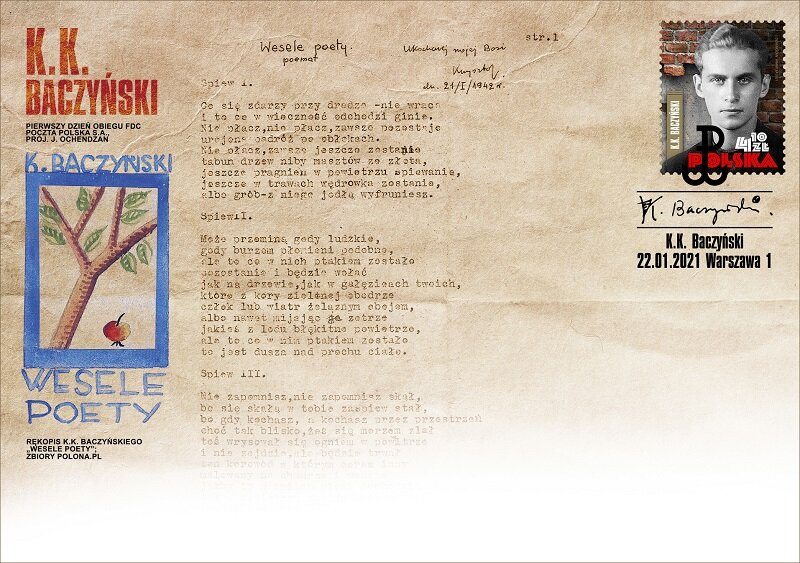 K.K.
BACZYŃSKI
PIERWSZY DZIEŃ OBIEGU FDC
POCZTA POLSKA S.A.,
PROJ. J. OCHENDZAN
K. BACZYŃSKI
WESELE
POETY
RĘKOPIS K.K. BACZYŃSKIEGO
„WESELE POETY";
ZBIORY POLONA.PL
str.1
Wesele poety.
poemat
Ukochanej mojej Basi
Krzysztof.
dn. 21/I/1942 r.
Spiew I.
Co się zdarzy przy drodze -nie wraca
i to co w wieczność odchodzi ginie.
Nie płacz,nie płacz,zawsze pozostaje
urojona podróż po obłokach.
Nie płacz,zawsze jeszcze zostanie
tabun drzew niby masztów ze złota,
jeszcze pragnień w powietrzu śpiewanie,
jeszcze w trawach wędrówka zostanie,
albo grób-z niego jodłą wyfruniesz.
SpiewII.
Może przeminą gody ludzkie,
gody burzom płomieni podobne,
ale to co w nich ptakiem zostało
pozostanie i będzie wołać
jak na drzewie,jak w gałęziach twoich,
które z kory zielonej obedrze
człek lub wiatr żelaznym obojem,
albo nawet mijając go zetrze
jakieś z lodu błękitne powietrze,
ale to co w nim ptakiem zostało
to jest dusza nad prochu ciało.
Spiew III.
Nie zapomnisz,nie zapomnisz skał,
bo się skałą w tobie zaśpiew stał,
bo gdy kochasz, a kochasz przez przestrzeń
choć tak blisko,żeś się morzem zlał
toś wrysował się ogniem w powietrze
i nie zejdzie,ale będzie trwał
ten korowód z którym
K.K. BACZYŃSKI
4 10 ZŁ
POLSKA
K. Baczyński.
K.K. Baczyński
22.01.2021 Warszawa 1